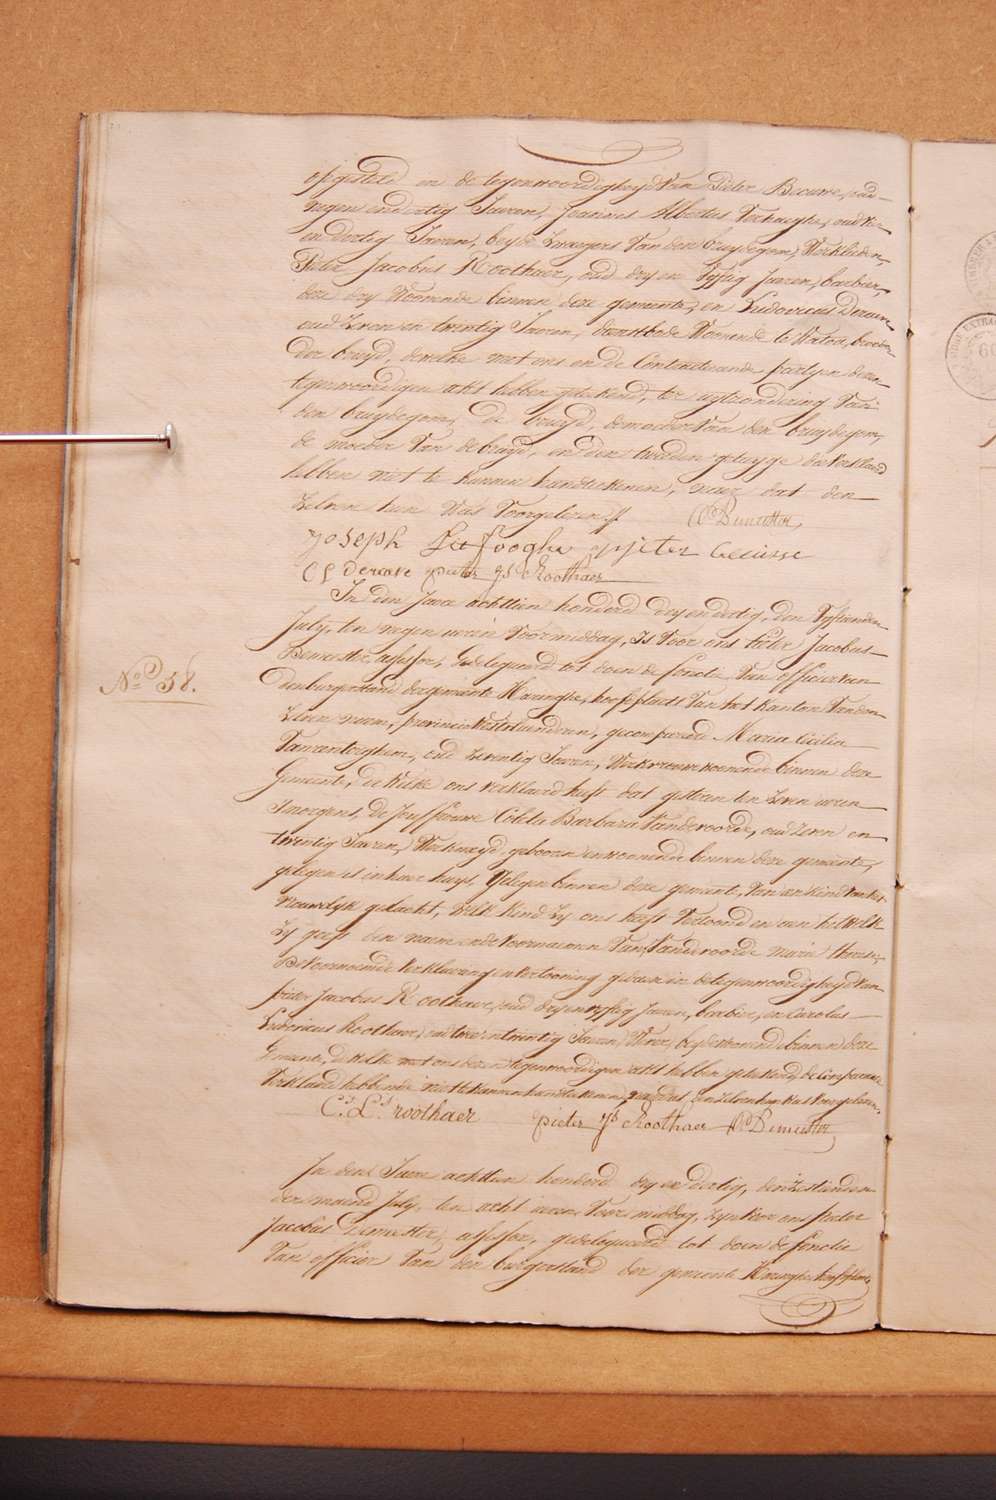 opgesteld en de tegenwoordigheyd van Pieter Becuwe, oud
negen en dertig Jaeren, Joannes Albertus Verhaeghe, oud
en dertig Jaeren, beyde zwaegers van den bruydegom, Werklieden,
Pieter Jacobus Roothaer, oud dry en vyftig Jaeren, barbier,
deze dry woonende binnen deze gemeente, en Ludovicus Deraeve
oud zeven en twintig Jaeren, woonende te Watou, broeder
der bruyd, dewelke met ons en de Contracteerende partyen dezen
tegenwoordigen akt hebben geteekend, ter uytzondering van
den bruydegom, de bruyd, de moeder van den bruydegom,
de moeder van de bruyd, en den tweeden getuyge die verklaerd
hebben niet te kunnen handteekenen, naer dat den
zelven hun was voorgelezen
PDemeester,
Joseph pieter becuwe
deraeve pieter Js Roothaer
N° 58.
In den Jaere achttien honderd dry en dertig, den vyftienden
July, ten negen uren voormiddag, Is voor ons Pieter Jacobus
Demeester, assessor, gedelegeerd tot doen de fonctie van officier van
den burgerstand der gemeente Haringhe, hoofdplaets van het kanton van den
zelven naem, provincie Westvlaenderen, gecompareerd Maria Cicilia
Vanrenterghem, oud zeventig Jaeren, Werkvrouw woonende binnen deze
Gemeente, de welke ons verklaerd heeft dat gisteren ten zeven uren
smorgens, de Jouffrouwe Coleta Barbara Vandevoorde, oud zeven en
twintig Jaeren, Werkmeyd, geboren en woonende binnen deze gemeente,
gelegen is in haer huys, gelegen binnen deze gemeente, van een kind van het
vrouwelyk geslacht, welk kind zy ons heeft vertoond en aen het welk
zy geeft den naem ende voornaemen van Vandevoorde marie therese,
De voornoemde verklaering en vertooning gedaen in de tegenwoordigheyd van
pieter Jacobus Roothaer, oud dry en vyftig Jaeren, barbier, en Carolus
Ludovicus Roothaer, oud twee en twintig Jaeren, Wever, beyde woonende binnen deze
Gemeente, de welke met ons dezen tegenwoordigen akt hebben geteekend, de Comparante
verklaerd hebbende niet te kunnen handteekenen, naer dat den zelven hun was voorgelezen.
C.s L.s roothaer pieter Js Roothaer PDemeester
In den Jaere achttien honderd dry en dertig, den zestienden
der maend July, ten acht uren voor middag, zyn voor ons pieter
Jacobus Demeester, assessor, gedelegueerd tot doen de fonctie
van officier van den burgerstand der gemeente Haringhe, hoofdplaets